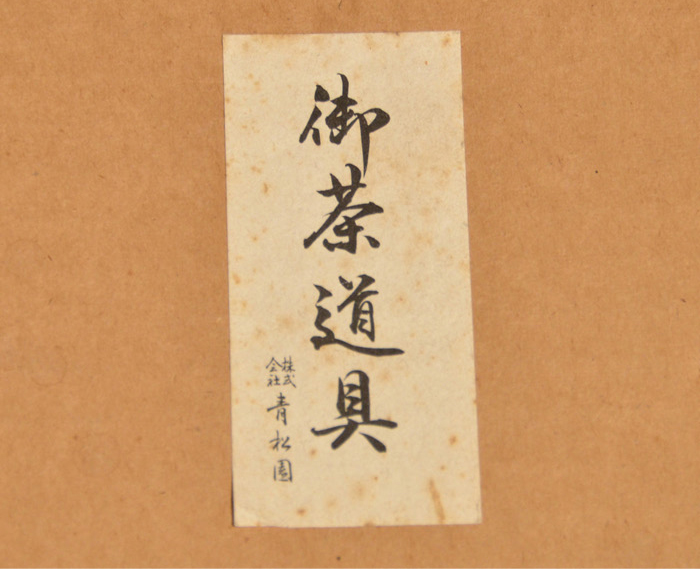 御茶道具
株式会社青松園